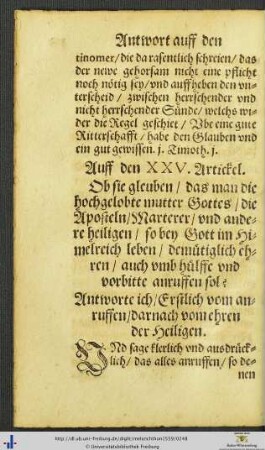 Antwort auff den
tinomer/die da rasentlich schreien/das
der newe gehorsam nicht eine pflicht
noch nötig sey/vnd auffheben den vn-
terscheid / zwischen herrschender vnd
nicht herrschender Sünde/ welchs wi-
der die Regel geschiet / Vbe eine gute
Ritterschafft / habe den Glauben vnd
ein gut gewissen. j. Timoth. j.
Auff den XXV. Artickel.
Ob sie gleuben / das man die
hochgelobte mutter Gottes / die
Aposteln/Marterer/ vnd ande-
re heiligen / so bey Gott im Hi-
melreich leben / demütiglich eh-
ren / auch vmb hülffe vnd
vorbitte anruffen sol?
Antworte ich/ Erstlich vom an-
ruffen/darnach vom ehren
der Heiligen.
VNd sage klerlich vnd ausdrück-
lich/ das alles anruffen/ so de-
nen
http://dl.ub.uni-freiburg.de/diglit/
© Universitätsbibliothek Freiburg
Baden-Württemberg